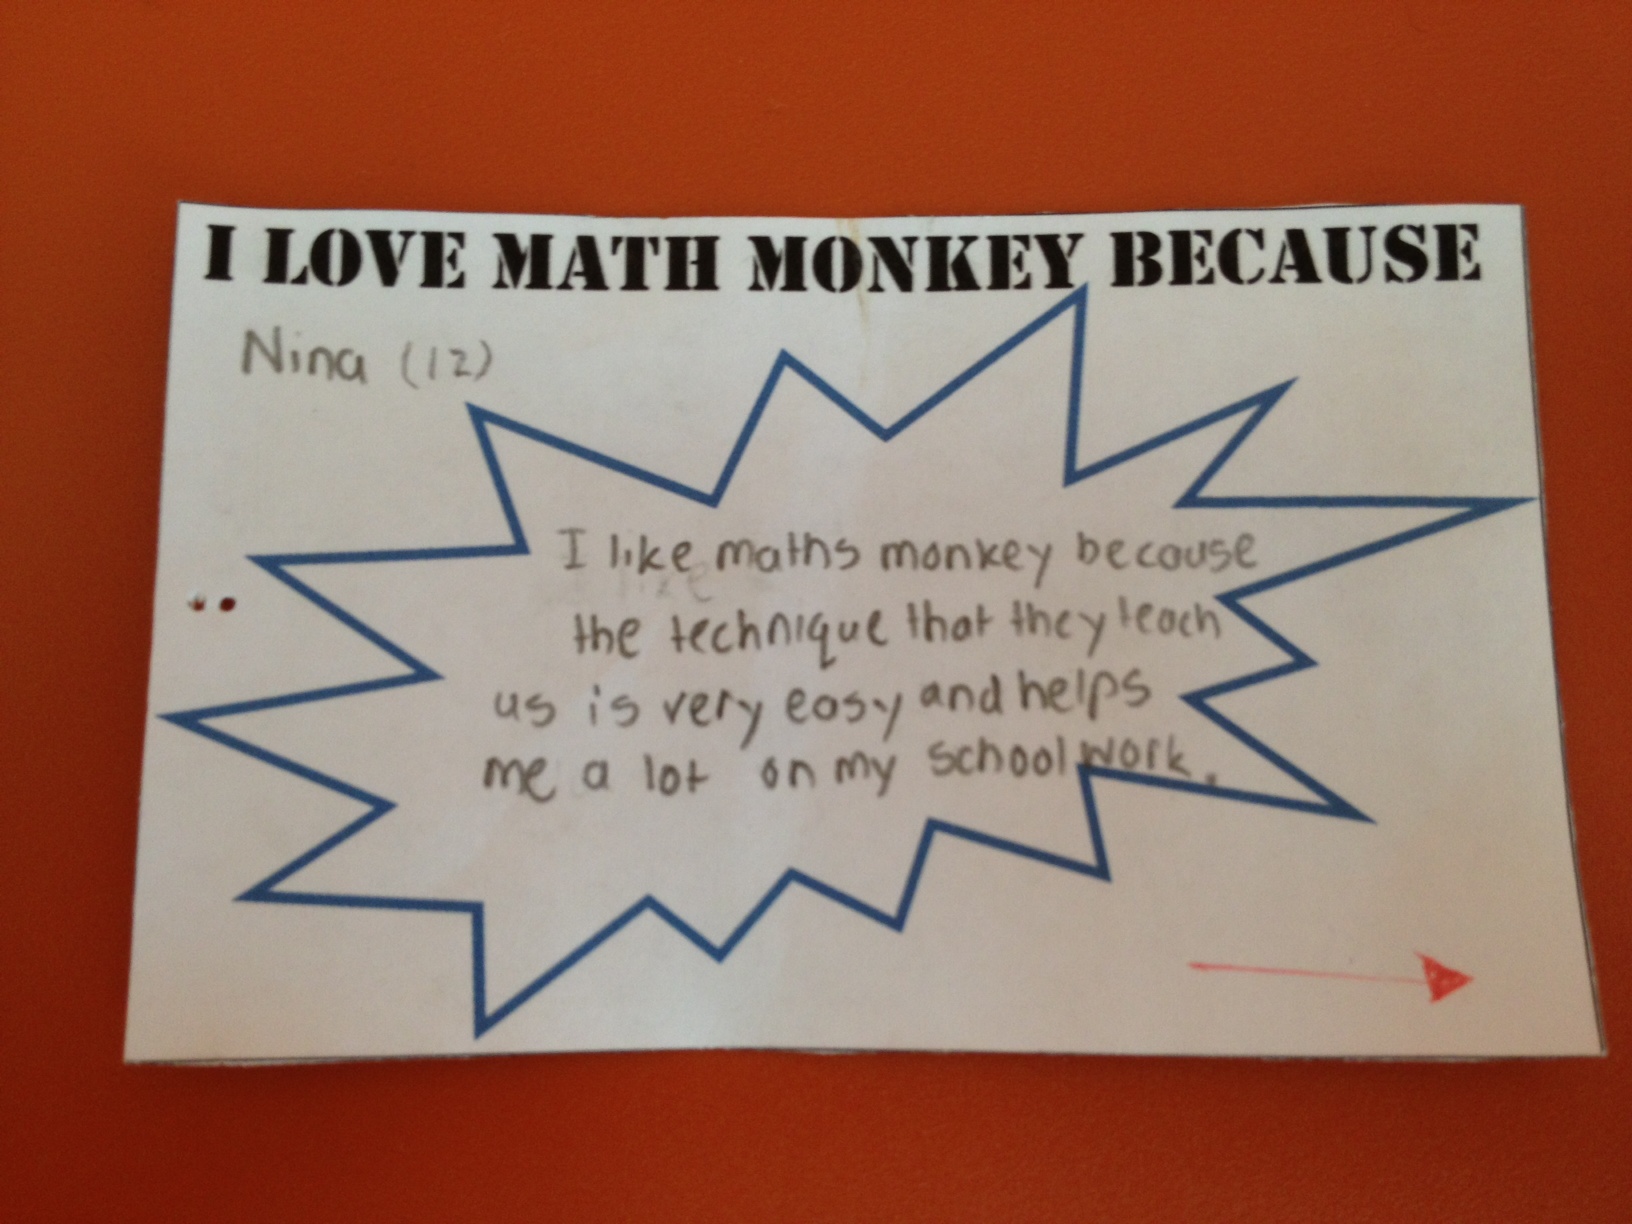 I LOVE MATH MONKEY BECAUSE
Nina (12)
I like maths monkey because
the technique that they teach
us is very easy and helps
me a lot on my school work.